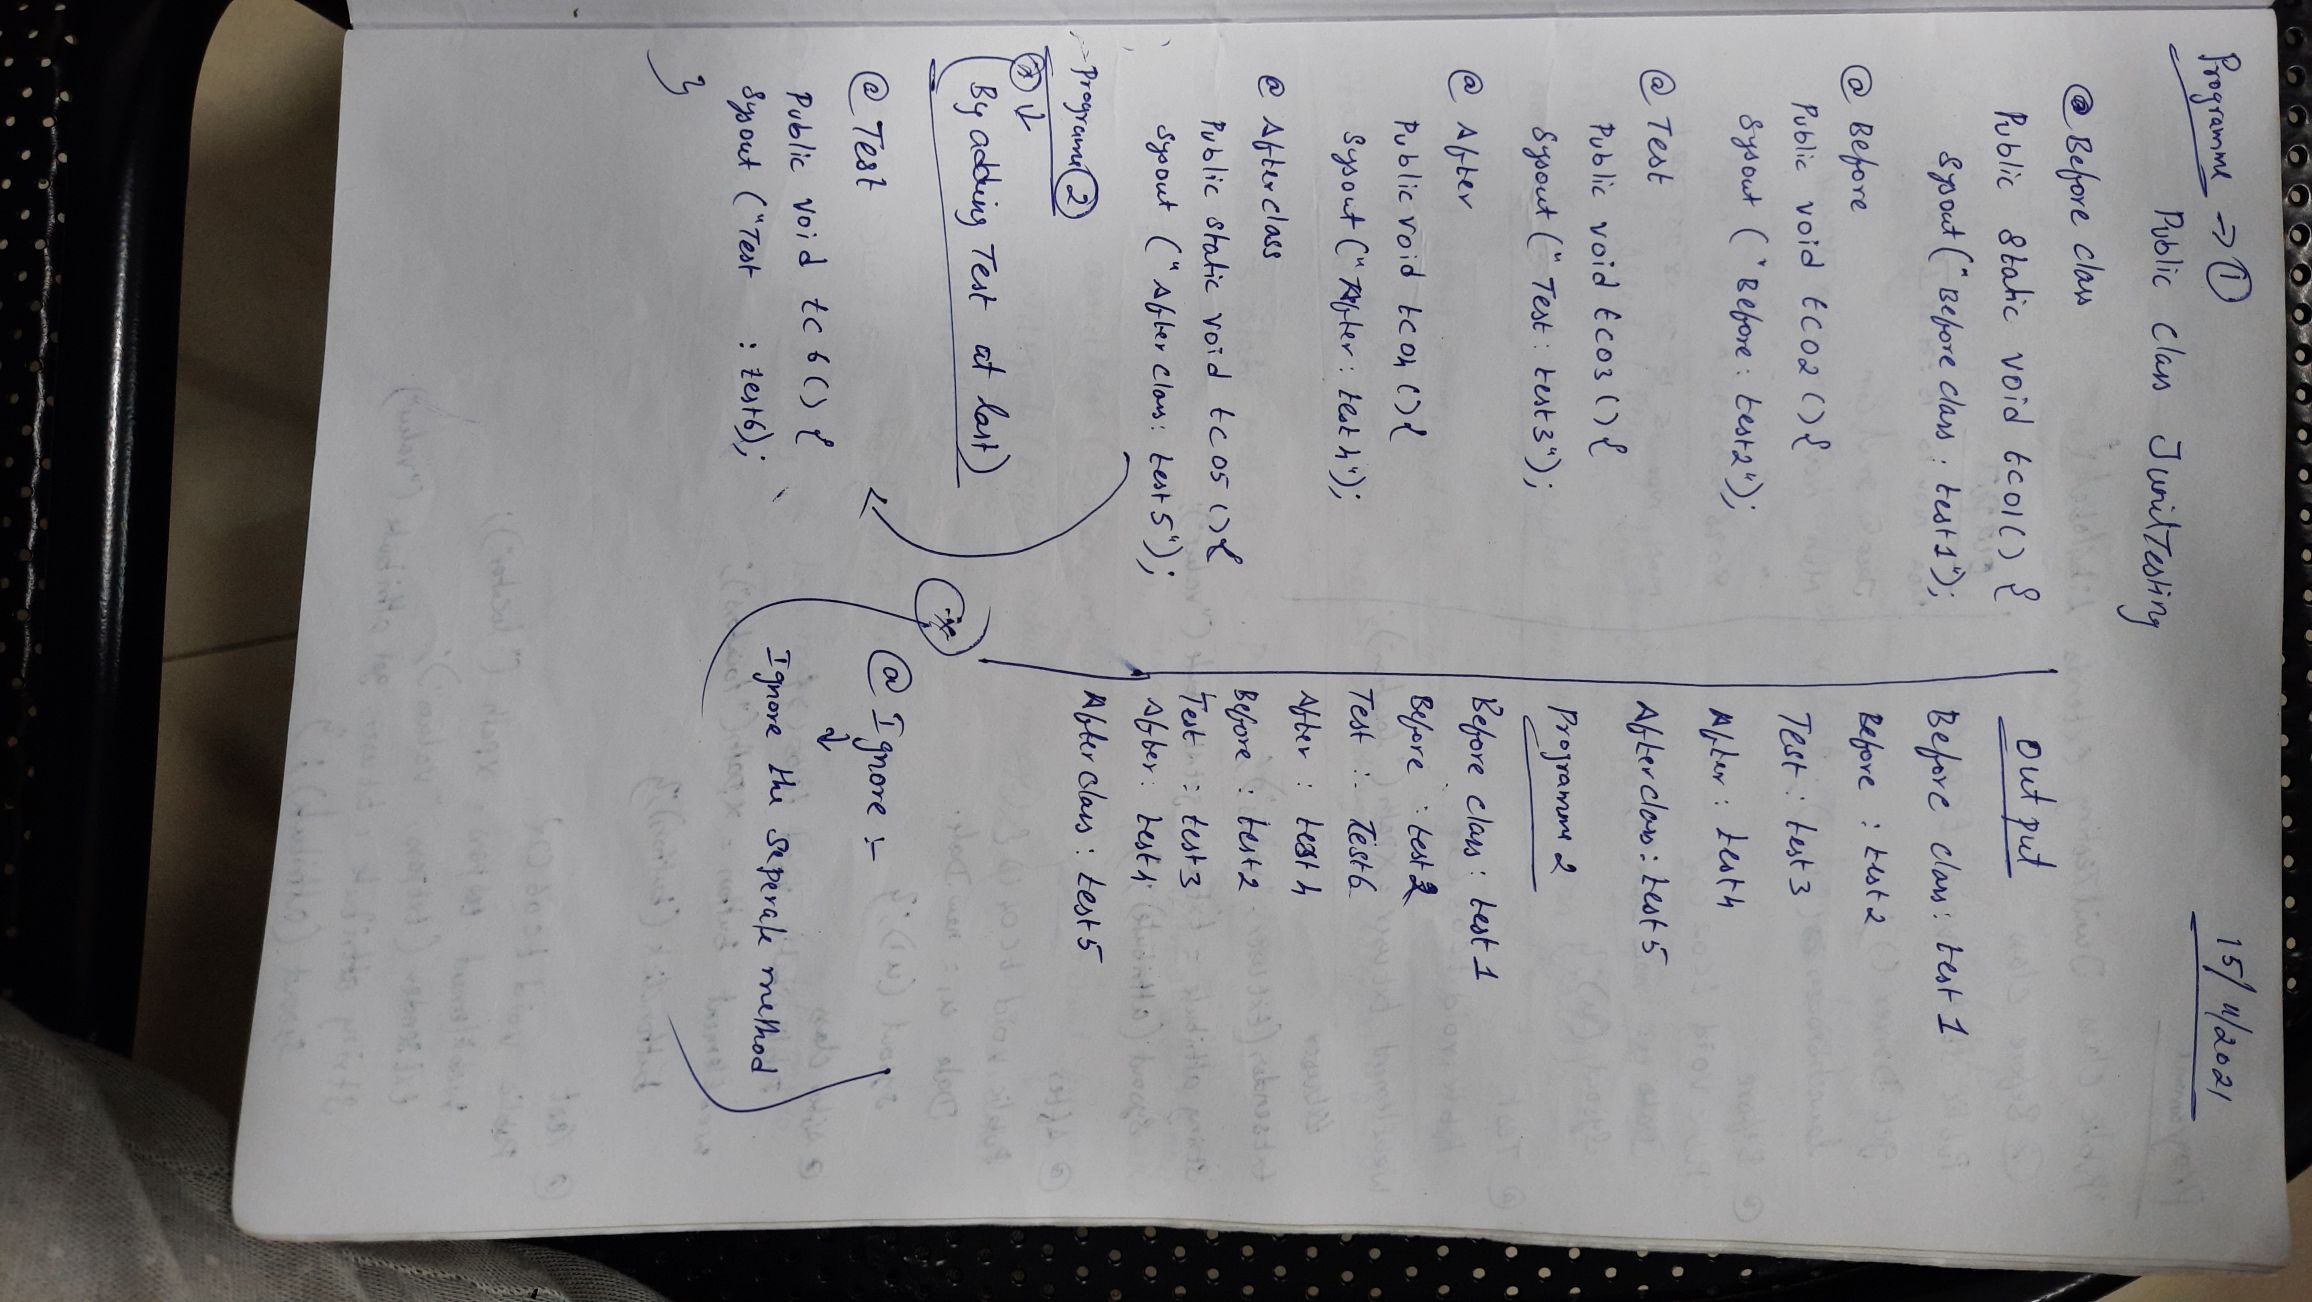 15/11/2021
Programme → ①
Public class JunitTesting
@ Before class
Public static void tc01() {
Sysout ("Before class : test1");
@ Before
Public void tc02 () {
Sysout ("Before : test2");
@ Test
Public void tc03 () {
Sysout ("Test : test3");
@ After
Public void tc04 () {
Sysout ("After : test4");
@ After class
Public static void tc05 () {
Sysout ("After class : test5");
→ Programe ②
By adding Test at last)
@ Test
Public void tc6 () {
Sysout ("Test : test6);
}
Output
Before class : test1
Before : test2
Test : test3
After : test4
After class : test5
Programme 2
Before class : test1
Before : test2
Test : Test6
After : test4
Before : test2
Test : test3
After : test4
After class : test5
@ Ignore :-
↓
Ignore the seperate method